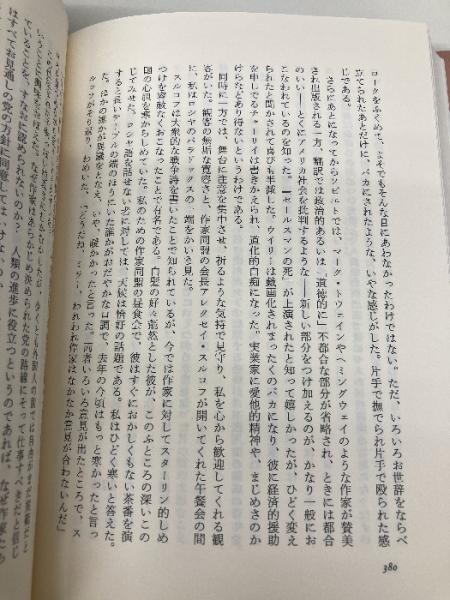 ロークをふくめて、そんな目にあわなかったわけではない。ただ、いろいろお世辞をならべ
立てられたあとだけに、バカにされたような、いやな感じがした。片手で撫でられ片手で殴られた感
じである。
さらにあとになってからソビエトでは、マーク・トウェインやヘミングウェイのような作家が賛美
され出版される一方、翻訳では政治的あるいは「道徳的に」不都合な部分が省略され、ときには都合
のいい――とくにアメリカ社会を批判するような――新しい部分をつけ加えるのが、かなり一般にお
こなわれているのを知った。『セールスマンの死』が上演されたと知って嬉しかったが、ひどく変え
られたと聞かされて喜びも半減した。ウイリーは戯画化されまったくのバカになり、彼に経済的援助
を申しでるチャーリイは書きかえられ、道化的白痴になった。実業家に愛他的精神や、まじめさのか
けらなどあり得ないというわけである。
同時に一方では、舞台に注意を集中させ、祈るような気持で見守り、私を心から歓迎してくれる観
客がいた。観客の無垢な寛容さと、作家同盟の会長アレクセイ・スルコフが開いてくれた午餐会の間
に、私はロシヤのパラドックスの一端をかいま見た。
スルコフは大衆的な戦争詩を書いたことで知られているが、今では作家に対してスターリン的しめ
つけを容赦なくおこなうことで有名である。白髪の好々爺然とした彼が、このふところの深いこの
国の心洞を垣からしめていた。私のための作家同盟の昼食会で、彼はすぐにおかしくもない茶番を演
じてみせた。ロシヤ語を話せない客に対しては、天候は恰好の話題である。私はひどく寒いと答えた。
すると長いテーブルの端のほうにいた誰かがおだやかな口調で、去年の今頃はもっと寒かったと言っ
た。ほかの誰かが異議をとなえ、いや、暖かかったと言った。二、三人がいろいろ意見が出たところで、ス
ルコフがそり返り、わめいた。「どうだね、ミラー、われわれ作家はなかなか意見が合わないんだ」
380